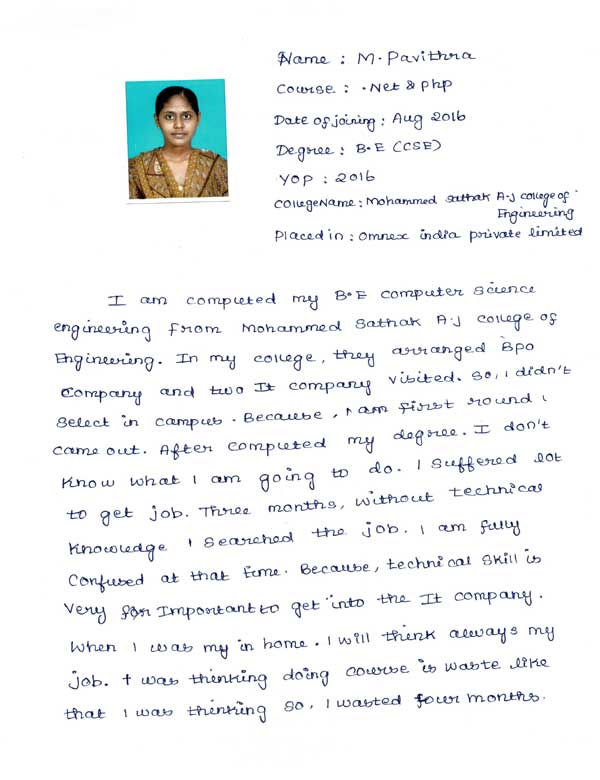 Name : M. Pavithra
Course : .Net & Php
Date of joining : Aug 2016
Degree : B.E (CSE)
YOP : 2016
College Name : Mohammed Sathak A.J college of
Engineering
Placed in : Omnex india private limited
I am completed my B.E computer science
engineering from Mohammed Sathak A.J college of
Engineering. In my college, they arranged Bpo
Company and two It company visited. So, I didn't
Select in campus. Because, I am first round I
came out. After completed my degree. I don't
know what I am going to do. I suffered lot
to get job. Three months, without technical
knowledge I searched the job. I am fully
confused at that time. Because, technical skill is
very for Important to get into the It company.
When I was my in home. I will think always my
job. I was thinking doing course is waste like
that I was thinking so, I wasted four months.